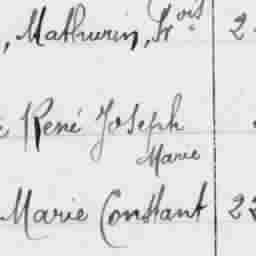 , Mathurin, Fr ois 2
René Joseph
Marie
Marie Constant 22